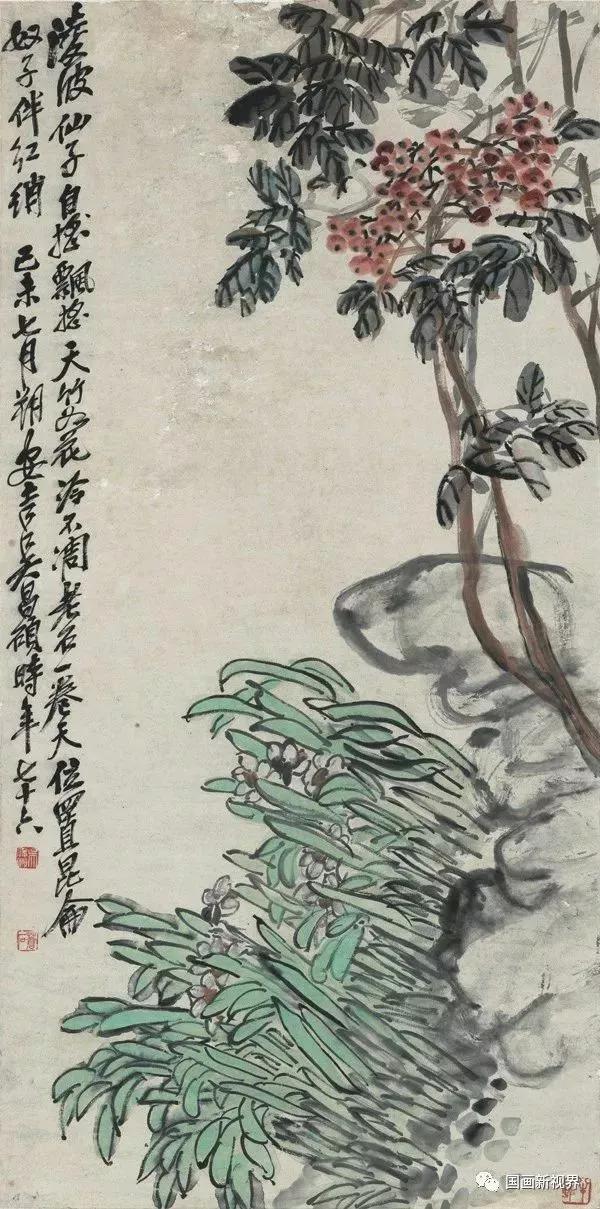 淩波仙子自搖飄搖天竹如花冷不凋老石一卷天位置昆侖
奴子伴紅綃 己未七月朔安吉吳昌碩時年七十六
国画新视界